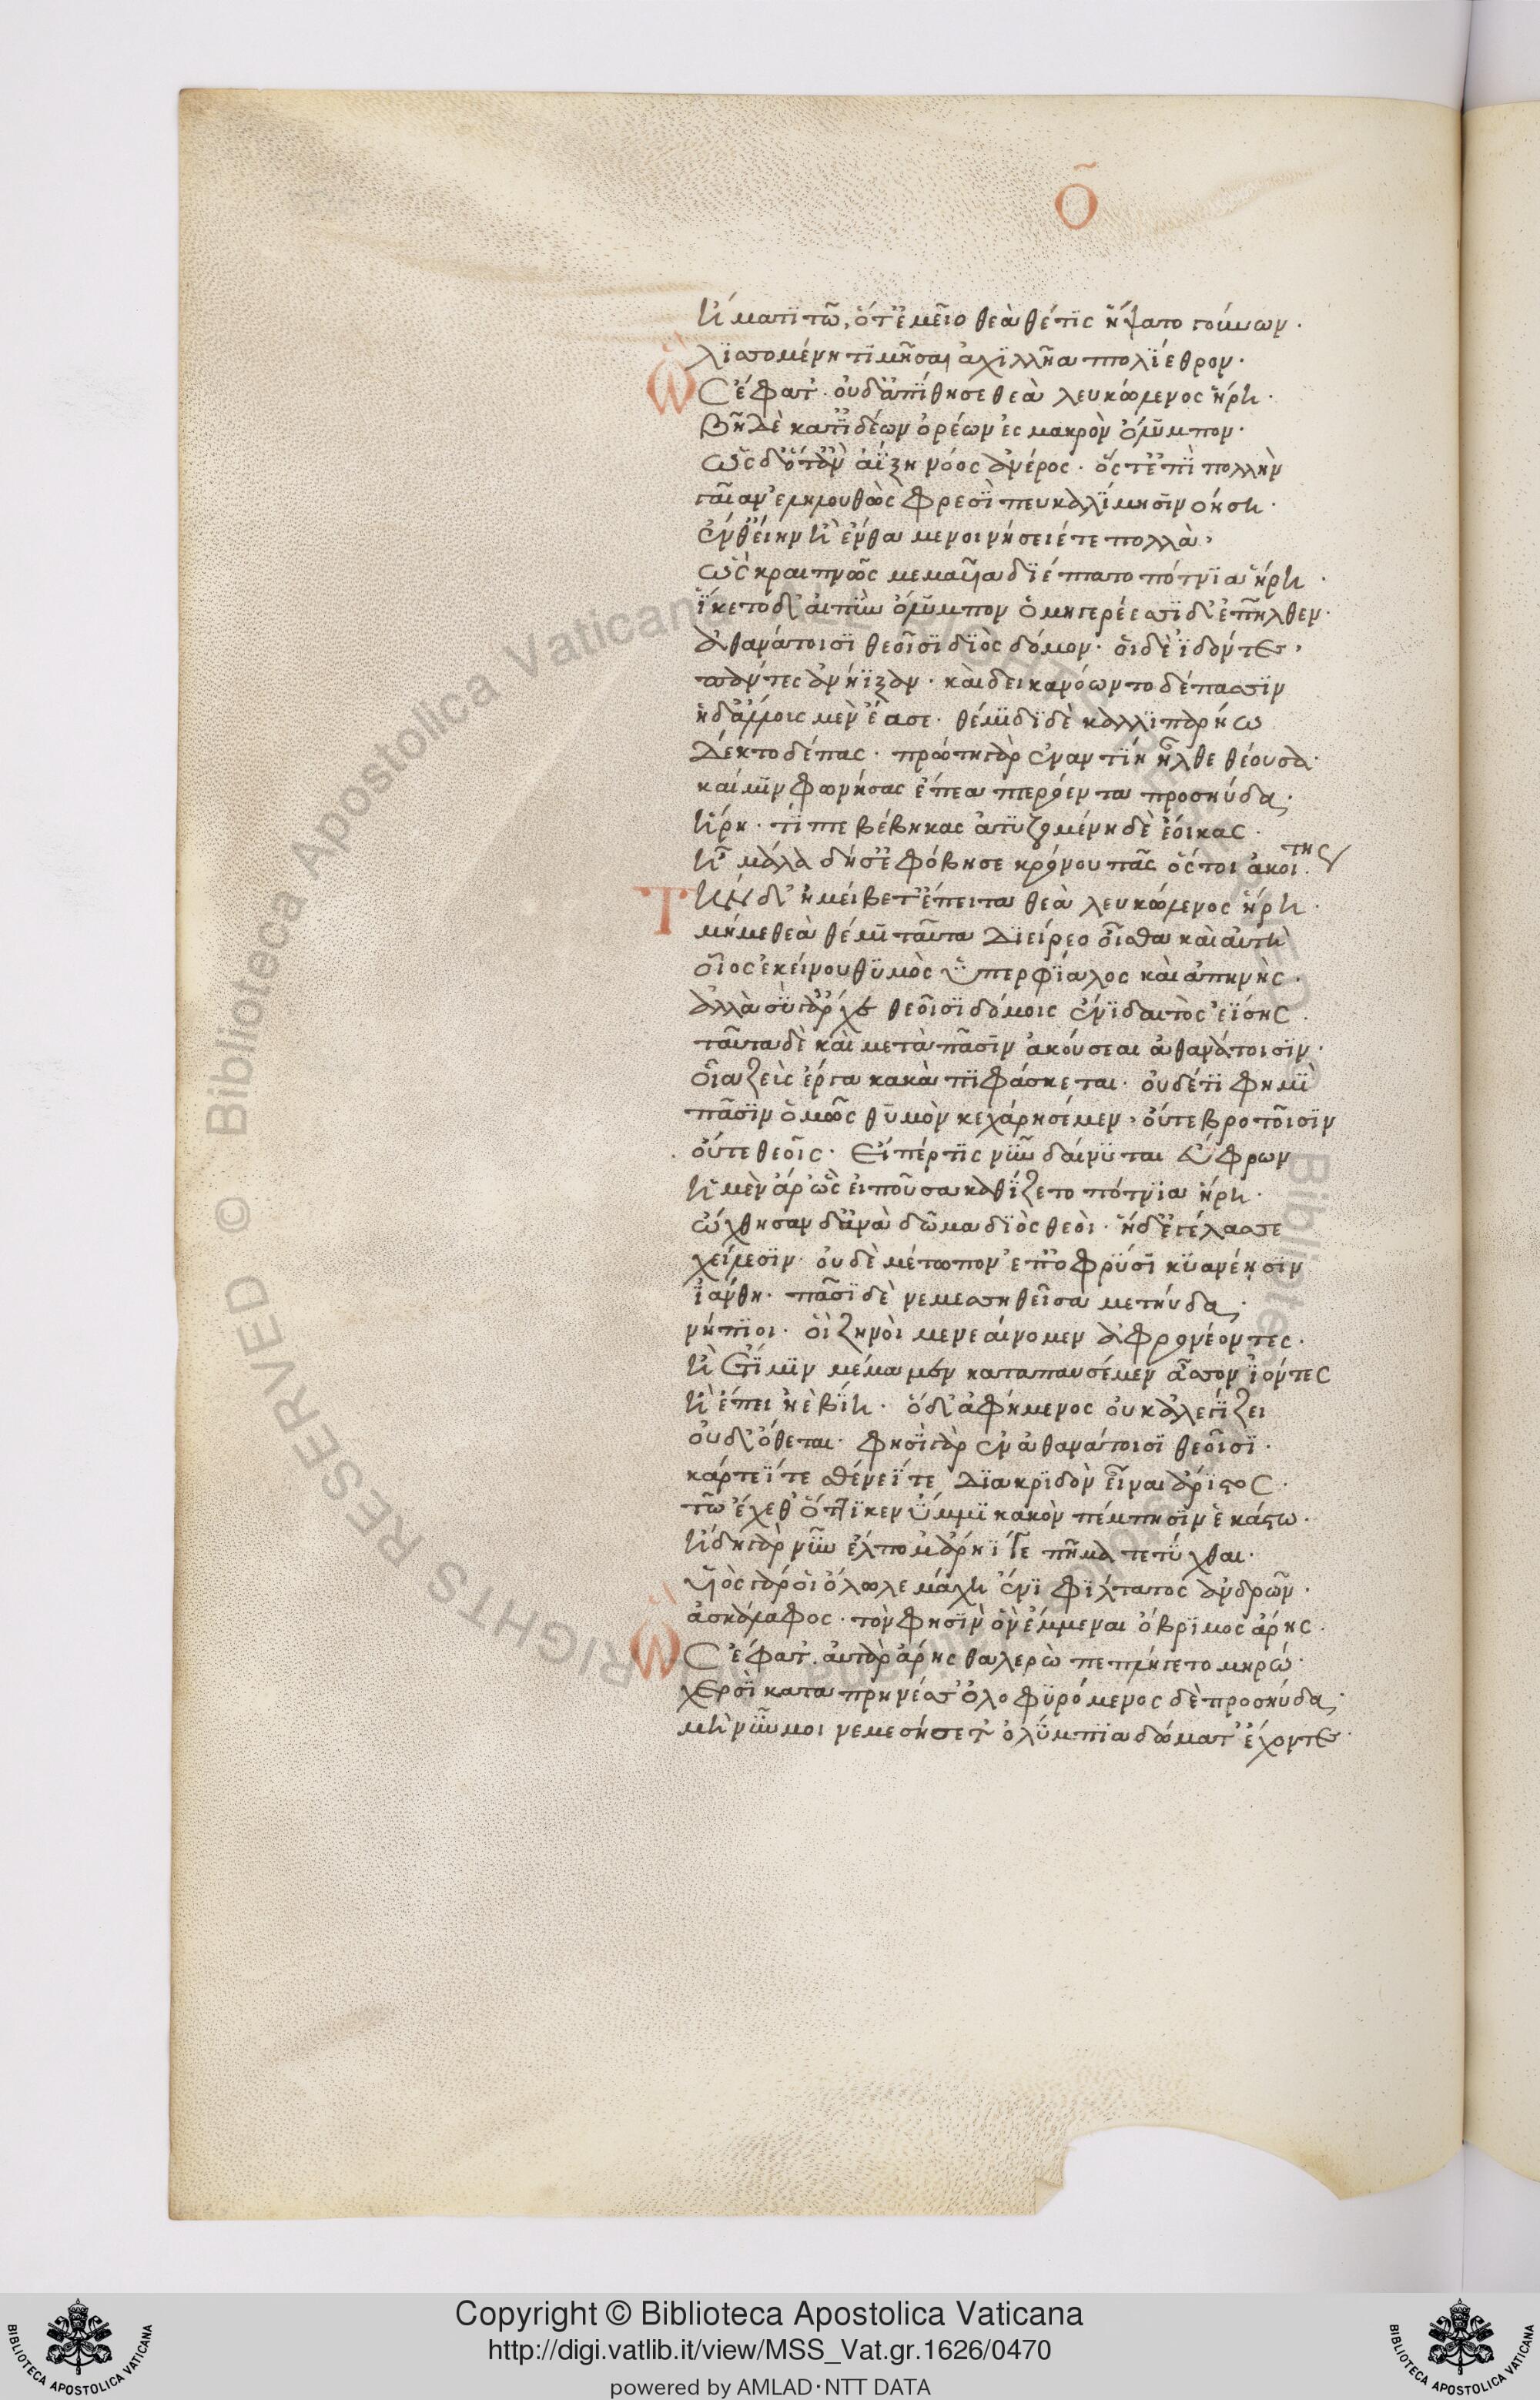 Ο
ἤματι τῶ, ὅτ' ἐμεῖο θεὰ θέτις ἥψατο γούνων·
λϊσσομένη τϊμῆσαι ἀχϊλλῆα πτολΐεθρον·
ὣς ἔφατ'· οὐδ' ἀπΐθησε θεὰ λευκώλενος ἥρη·
βῆ δὲ κατ' ϊ̓δέων ὀρέων ἐς μακρὸν ὄλυμπον·
ὡς δ' ὅτ' ὰν ἀΐξη νόος ἀνέρος· ὅς τ' ἐπῒ πολλὴν
γαῖαν ἐληλουθὼς φρεσῒ πευκαλΐμησϊν ὀήση·
ἔνθ' εἴην ἢ ἔνθα μενοινήσειέ τε πολλὰ,
ὣς κραιπνῶς μεμαυῖα δϊέπτατο πότνϊα ἥρη·
ἵκετο δ' αἰπὺν ὄλυμπον ὁμηγερέεσσϊ δ' ἐπῆλθεν·
ἀθανάτοισϊ θεοῖσϊ δϊὸς δόμον· οἳ δὲ ϊ̓δόντες,
πάντες ἀνήϊξαν· καὶ δεικανόωντο δέπασσϊν
ἡ δ' ἄλλους μὲν ἔασε· θέμϊδϊ δὲ καλλϊπαρήω
δέκτο δέπας· πρώτη γὰρ ἐναντΐη ἦλθε θέουσα·
καί μιν φωνήσασ' ἔπεα πτερόεντα προσηύδα·
ἥρη· τΐπτε βέβηκας ἀτυζομένη δὲ ἔοικας·
ἦ μάλα δή σ' ἐφόβησε κρόνου παῖς ὅς τοι ἀκοίτης
τὴν δ' ἠμείβετ' ἔπειτα θεὰ λευκώλενος ἥρη·
μή με θεὰ θέμϊ ταῦτα δϊείρεο οἶσθα καὶ αὐτὴ
οἷος ἐκείνου θυμὸς ὑπερφΐαλος καὶ ἀπηνὴς·
ἀλλὰ σὺ γ' ἄρχε θεοῖσϊ δόμοις ἔνϊ δαιτὸς ἐΐσης·
ταῦτα δὲ καὶ μετὰ πᾶσϊν ἀκούσεαι ἀθανάτοισϊν·
οἷα ζεὺς ἔργα κακὰ πϊφάσκεται· οὐδέ τΐ φημῒ
πᾶσϊν ὁμῶς θυμὸν κεχαρησέμεν, οὔτε βροτοῖσϊν
οὔτε θεοῖς· εἴ πέρ τϊς νῦν δαίνυται εὔφρων
ἣ μὲν ἄρ' ὣς εἰποῦσα καθΐζετο πότνϊα ἥρη·
ὤχθησαν δ' ἀνὰ δῶμα δϊὸς θεοὶ· ἣ δ' ἐγέλασσε
χείλεσϊν· οὐδὲ μέτωπον ἐπ' ὀφρύσϊ κυανέησϊν
ἰάνθη· πᾶσϊ δὲ νεμεσσηθεῖσα μετηύδα·
νήπϊοι· οἳ ζηνὶ μενεαίνομεν ἀφρονέοντες·
ἢ ἔτϊ μϊν μέμαμεν καταπαυσέμεν ἆσσον ἰόντες
ἢ ἔπει ἠὲ βΐη· ὅ δ' ἀφήμενος οὐκ ἀλεγΐζει
οὐδ' ὄθεται· φησῒ γὰρ ἐν ἀθανάτοισϊ θεοῖσϊ·
κάρτεΐ τε σθένεΐ τε δϊακρϊδὸν εἶναι ἄρϊστος·
τῶ ἔχεθ' ὅττϊ κεν ὔμμϊ κακὸν πέμπησϊν ἑκάστω·
ἤδη γὰρ νῦν ἔλπομ' ἄρηΐ γε πῆμα τετύχθαι·
υἱὸς γάρ οἱ ὄλωλε μάχη ἔνϊ φΐλτατος ἀνδρῶν·
ἀσκάλαφος· τὸν φησϊν ὃν ἔμμεναι ὄβρϊμος ἄρης·
ὣς ἔφατ'· αὐτὰρ ἄρης θαλερὼ πεπλήγετο μηρώ·
χερσῒ καταπρηνέσσ' ὀλοφυρόμενος δὲ προσηύδα·
μὴ νῦν μοι νεμεσήσετ' ὀλύμπϊα δώματ' ἔχοντες·
Copyright © Biblioteca Apostolica Vaticana
http://digi.vatlib.it/view/MSS_Vat.gr.1626/0470
powered by AMLAD·NTT DATA